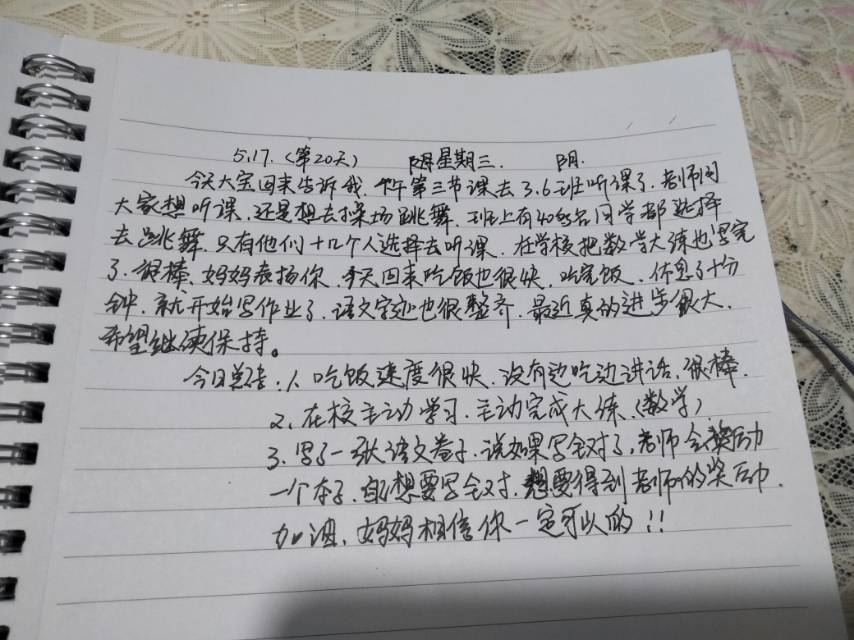 5.17.(第20天) 星期三. 阴.
今天大宝回来告诉我, 下午第三节课去3.6班听课了. 老师问
大家想听课, 还是想去操场跳舞, 班上有40多名同学都选择
去跳舞, 只有他们十几个人选择去听课. 在学校把数学大练也写完
了. 很棒, 妈妈表扬你, 今天回来吃饭也很快, 吃完饭, 休息了十分
钟, 就开始写作业了, 语文字迹也很整齐, 最近真的进步很大,
希望继续保持。
今日总结: 1、吃饭速度很快, 没有边吃边讲话, 很棒.
2、在校主动学习, 主动完成大练.(数学)
3、写了一张语文卷子, 说如果写全对了, 老师会奖励
一个本子, 自己想要写全对, 想要得到老师的奖励.
加油, 妈妈相信你一定可以的!!